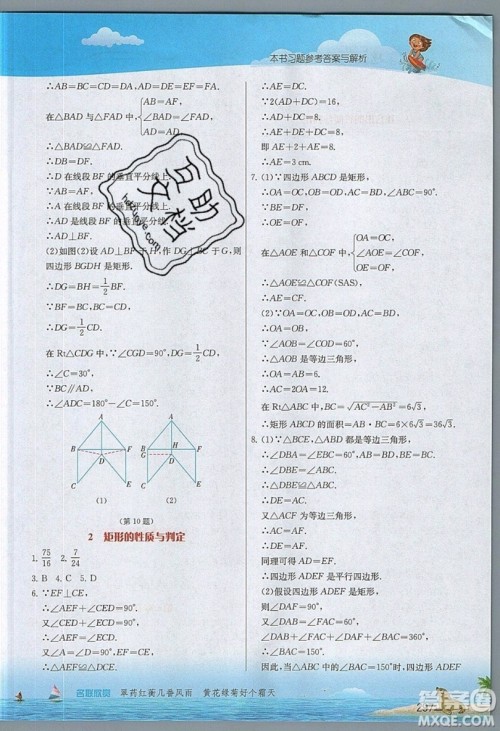 本书习题参考答案与解析
∴AB=BC=CD=DA,AD=DF=AF.
在△BAD 与△FAD 中, { AB=AF,
∴△BAD≌△FAD.
∴DB=DF.
∴D 在线段 BF 的垂直平分线上.
∴A 在线段 BF 的垂直平分线上.
∴AD 是线段 BF 的垂直平分线.
∴AD⊥BF.
(2)如图(2)设 AD⊥BF 于 H,作 DG⊥BC 于 G,则
四边形 BGDH 是矩形.
∴DG=BH=1/2 BF.
∵BF=BC,BC=CD,
∴DG=1/2 CD.
在 Rt△CDG 中,∵∠CGD=90°,DG=1/2 CD,
∴∠C=30°.
∵BC∥AD,
∴∠ADC=180°-∠C=150°.
A A
B E F B H F
G
D D
C E C E
(1) (2)
(第10题)
2 矩形的性质与判定
1. 75/16 2. 7/24
3. B 4. C 5. D
6. ∵EF⊥CE,
∴∠AEF+∠CED=90°.
又∠CED+∠ECD=90°,
∴∠AEF=∠ECD.
又∠A=∠D=90°,EF=CE,
∴△AEF≌△DCE.
∴AE=DC.
∵2(AD+DC)=16,
∴AD+DC=8.
∴AE+DE+DC=8.
即 AE+2+AE=8.
∴AE=3 cm.
7. (1)∵四边形 ABCD 是矩形,
∴OA=OC,OB=OD,AC=BD.
∴AO=OC=OB=OD.
在△AOE 和△COF 中, { OA=OC,
∠AOE=∠COF,
OE=OF,
∴△AOE≌△COF(SAS).
∴AE=CF.
(2)∵OA=OC,OB=OD,AC=BD,
∴OA=OB.
∵∠AOB=∠COD=60°,
∴△AOB 是等边三角形.
∴OA=AB=6.
∴AC=2OA=12.
在 Rt△ABC 中,BC=√(AC²-AB²)=6√3,
∴矩形 ABCD 的面积=AB·BC=6×6√3=36√3.
8. (1)∵△BCE,△ABD 都是等边三角形,
∴∠DBA=∠EBC=60°,BD=BA,BE=BC.
∴∠DBE=∠ABC.
∴△DBE≌△ABC.
∴DE=AC.
又△ACF 为等边三角形,
∴AC=AF.
∴DE=AF.
同理可得 AD=EF.
∴四边形 ADEF 是平行四边形.
(2)假设四边形 ADEF 是矩形,
则∠DAF=90°.
又∠DAB=∠FAC=60°,
∠DAB+∠FAC+∠DAF+∠BAC=360°,
∴∠BAC=150°.
当△ABC 满足∠BAC=150°时,四边形 ADEF
名联欣赏 翠药红蘅几番风雨 黄花绿菊好个霜天
237
互助文档
答案圈
MXQE.COM